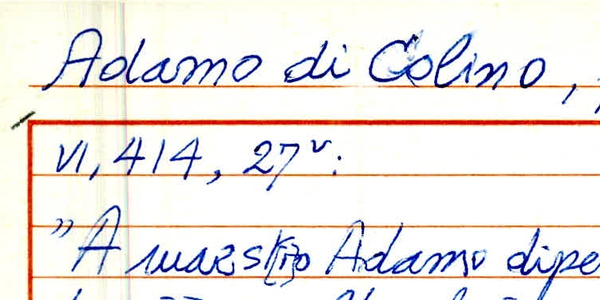 Adamo di Colino,
VI, 414, 27v:
"A maest[r]o Adamo dipe